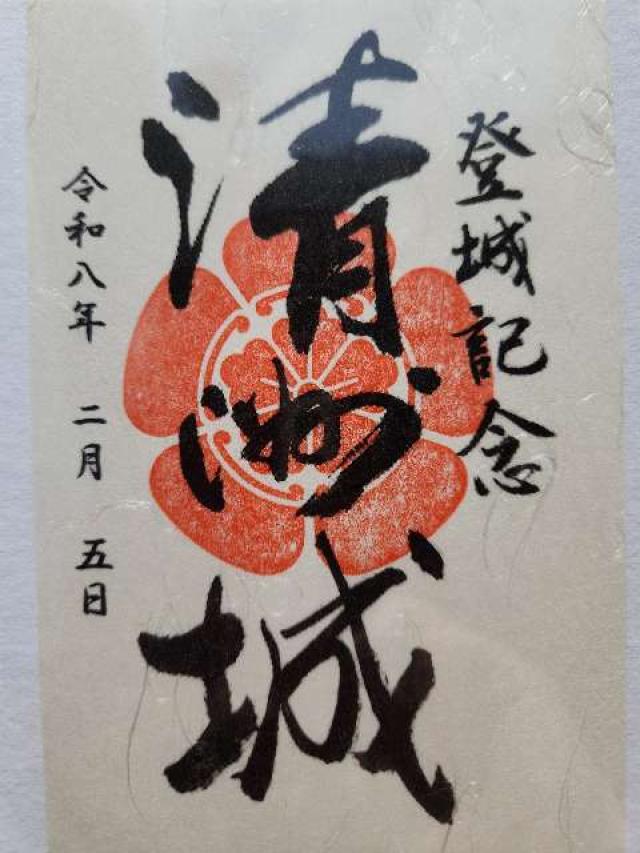 登城記念
清洲城
令和八年 二月 五日